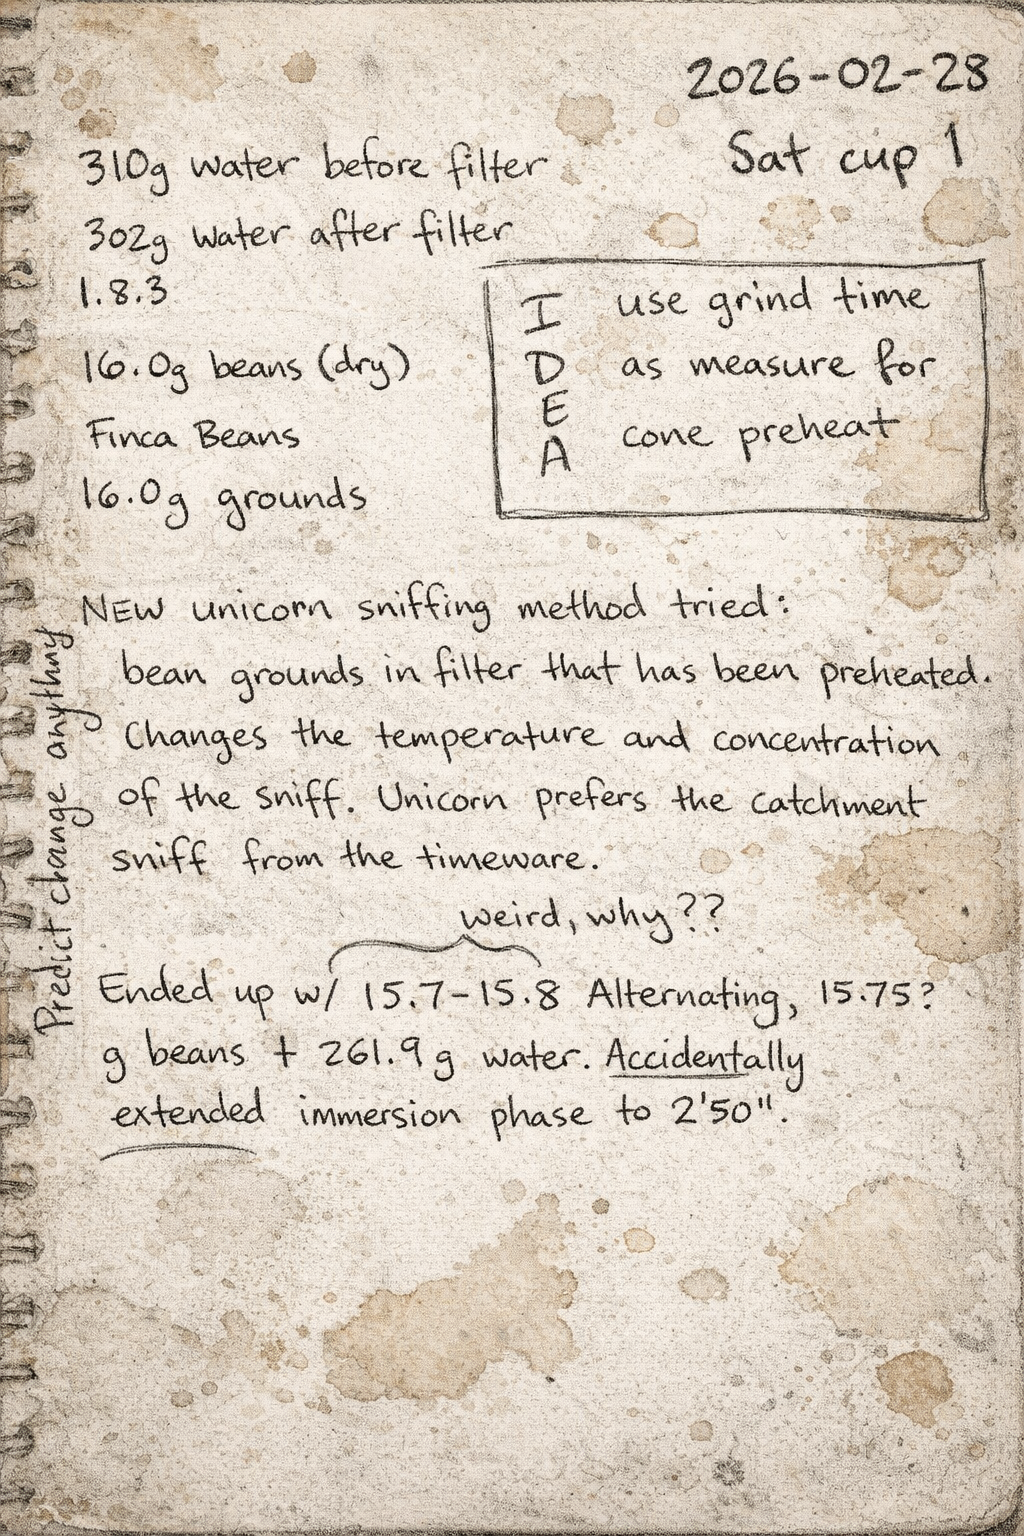 2026-02-28
Sat cup 1
310g water before filter
302g water after filter
1.8.3
16.0g beans (dry)
Finca Beans
16.0g grounds
IDEA
use grind time
as measure for
cone preheat
NEW unicorn sniffing method tried:
bean grounds in filter that has been preheated.
Changes the temperature and concentration
of the sniff. Unicorn prefers the catchment
sniff from the timeware.
Predict change anythny
weird, why??
Ended up w/ 15.7-15.8 Alternating, 15.75?
g beans + 261.9g water. Accidentally
extended immersion phase to 2'50".